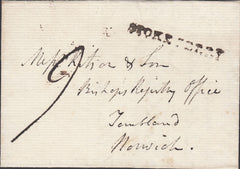 STOKE FERRY
Messrs Kitson & Son
Bishops Registry Office
Tombland
Norwich.
9